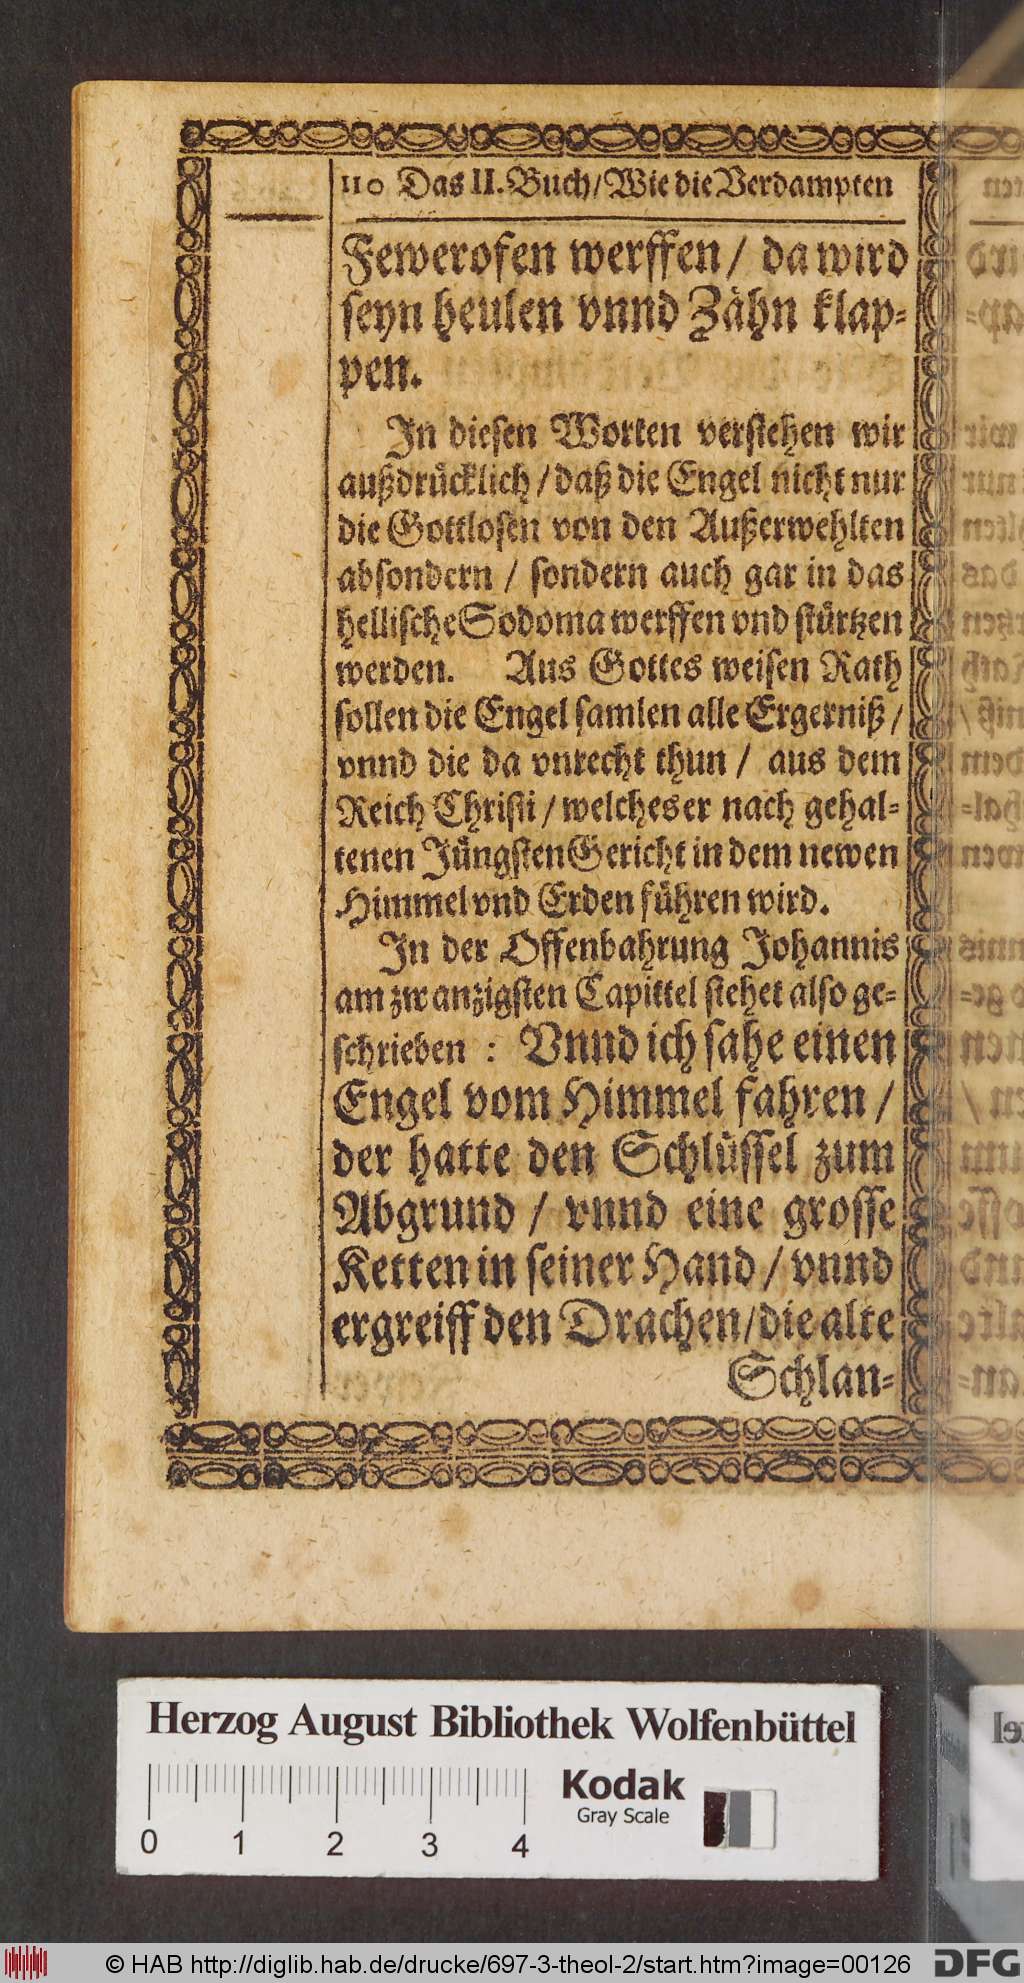 110 Das II. Buch/ Wie die Verdampten
Fewerofen werffen/ da wird
seyn heulen vnnd Zähn klap-
pen.
In diesen Worten verstehen wir
außdrücklich/ daß die Engel nicht nur
die Gottlosen von den Außerwehlten
absondern / sondern auch gar in das
hellische Sodoma werffen vnd stürtzen
werden. Aus Gottes weisen Rath
sollen die Engel samlen alle Ergerniß/
vnnd die da vnrecht thun / aus dem
Reich Christi/ welches er nach gehal-
tenen Jüngsten Gericht in dem newen
Himmel vnd Erden führen wird.
In der Offenbahrung Johannis
am zwanzigsten Capittel stehet also ge-
schrieben : Vnnd ich sahe einen
Engel vom Himmel fahren /
der hatte den Schlüssel zum
Abgrund / vnnd eine grosse
Ketten in seiner Hand / vnnd
ergreiff den Drachen/die alte
Schlan-
Herzog August Bibliothek Wolfenbüttel
Kodak
Gray Scale
0 1 2 3 4
© HAB http://diglib.hab.de/drucke/697-3-theol-2/start.htm?image=00126
DFG